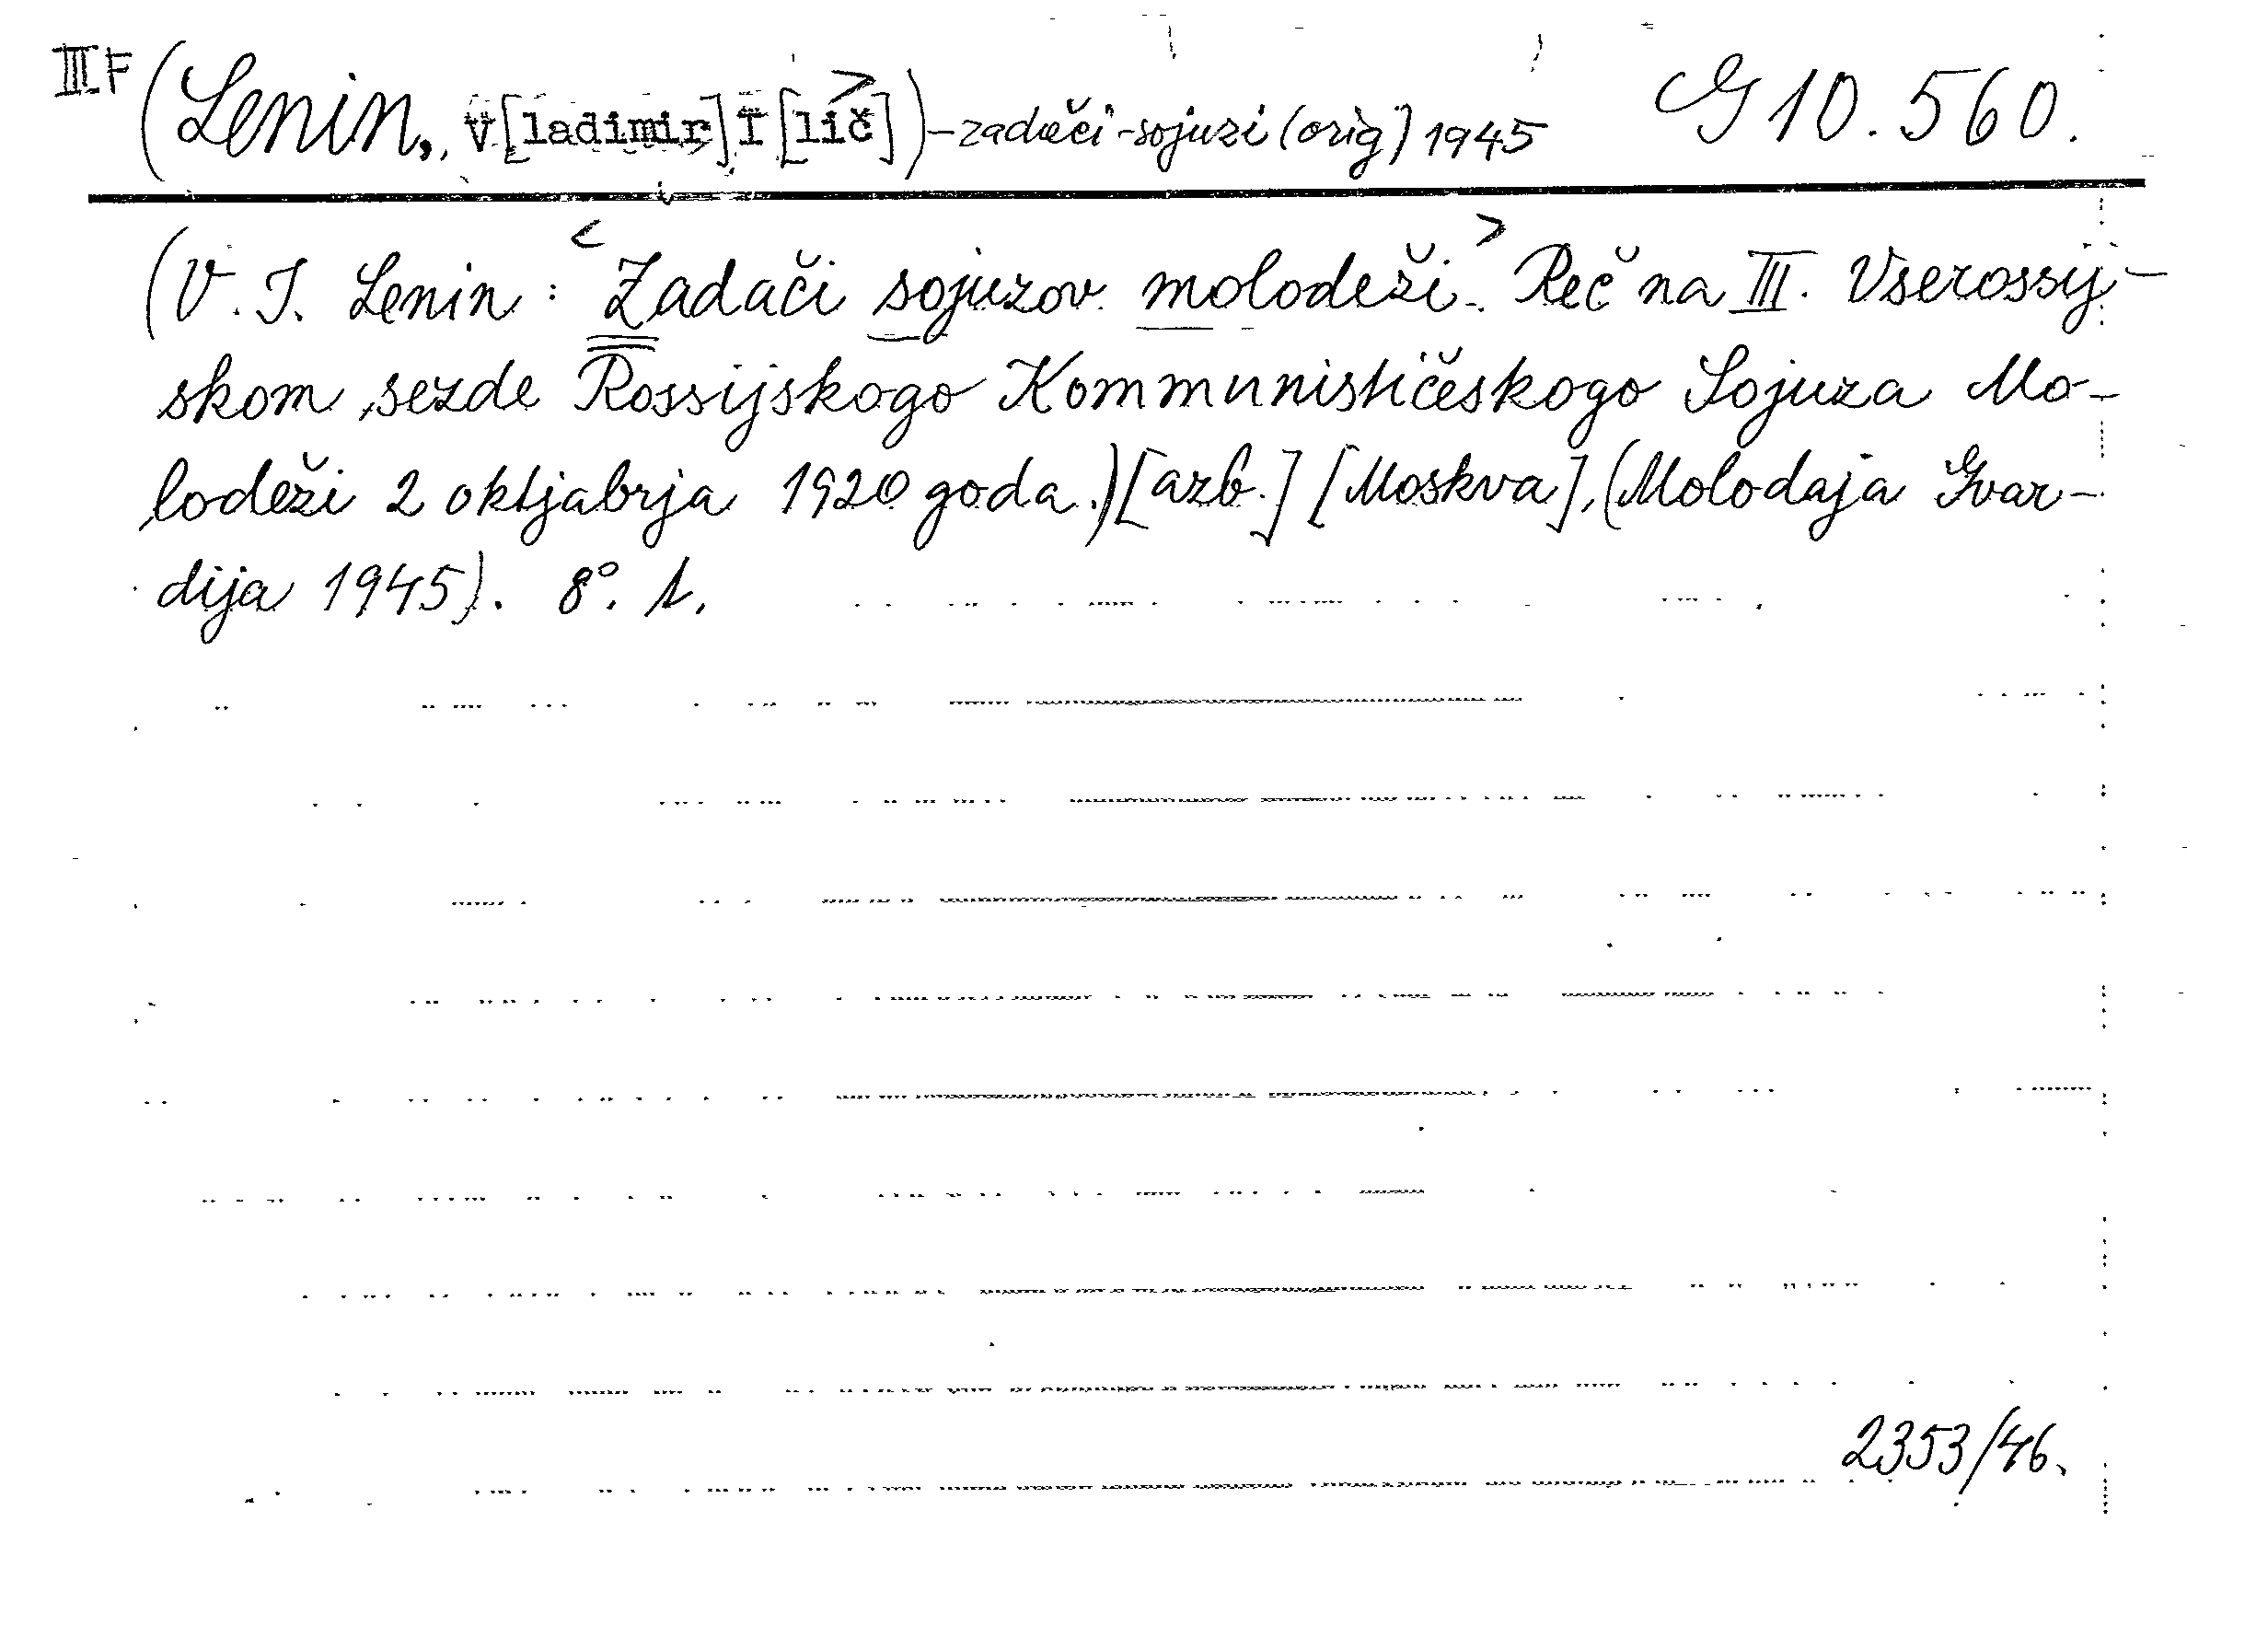 III F (Lenin, V[ladimir] I[lič]> ) – zadači - sojuzi (orig) 1945 G 10.560.
(V. I. Lenin: <Zadači sojuzov molodeži.> Reč na III. Vserossij-
skom sezde Rossijskogo Kommunističeskogo Sojuza Mo-
lodeži 2 oktjabrja 1920 goda.) [azb.] [Moskva], (Molodaja Gvar-
dija 1945). 8°. 1.
2353/46.